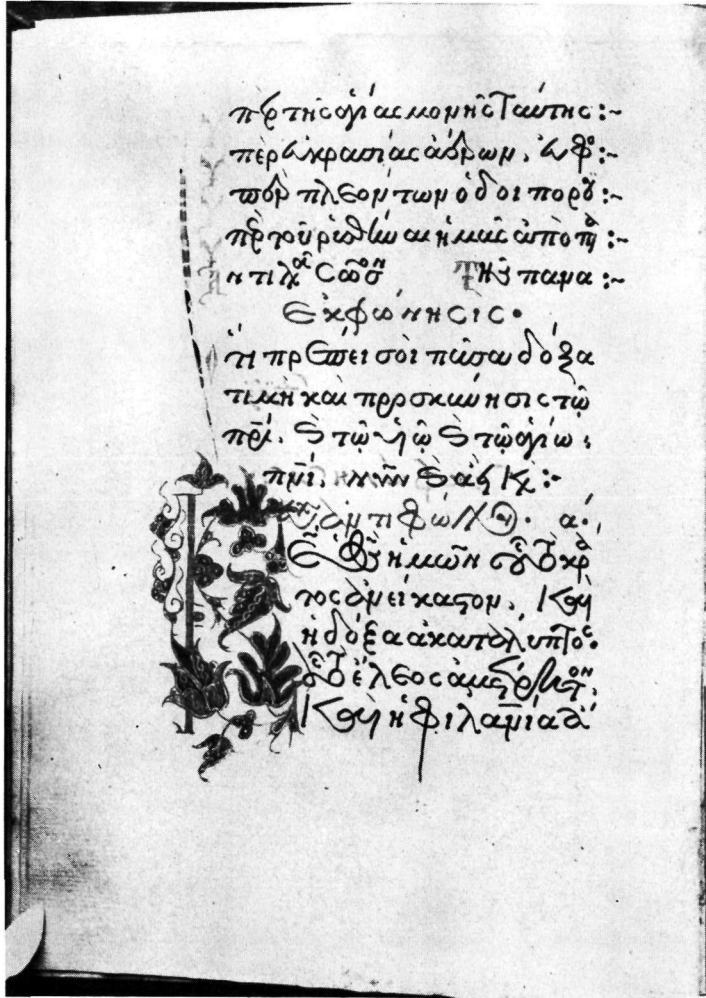 πὲρ τῆς ἁγίας μονῆς ταύτης :~
πὲρ εὐκρασίας ἀέρων. εὐφο :~
πὲρ πλεόντων ὁδοιπορού :~
πὲρ τοῦ ῥυσθῆναι ἡμᾶς ἀπὸ π :~
ντιλαβοῦ Σῶσον Τῆς πανα :~
Ἐκφώνησις.
τι πρέπει σοι πᾶσα δόξα
τιμὴ καὶ προσκύνησις τῷ
πρι. καὶ τῷ υἱῷ καὶ τῷ ἁγίω
πνι. νῦν καὶ ἀεὶ καὶ :~
ἀντιφώνου. α.
Ε ὁ θς ἡμῶν οὗ τὸ κρά
τος ἀνείκαστον. καὶ
ἡ δόξα ἀκατάληπτος.
οὗ τὸ ἔλεος ἀμέτρητον.
καὶ ἡ φιλανία ἄ